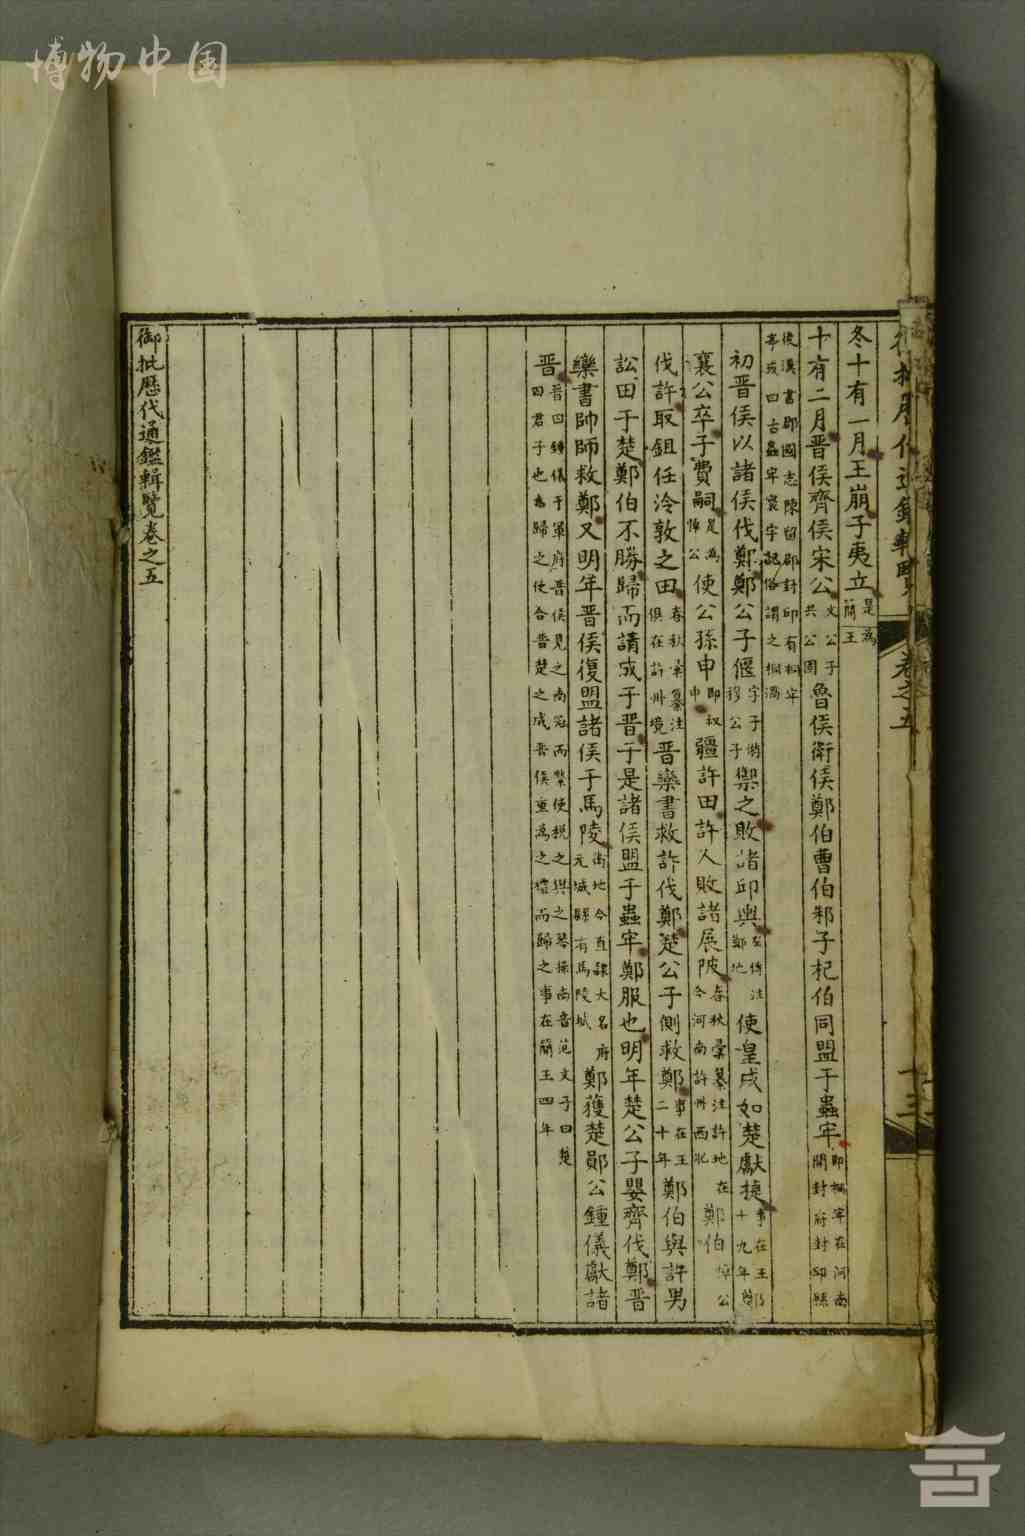 博物中国
御批歷代通鑑輯覽 卷之五 十三
冬十有一月王崩子夷立是爲簡王
十有二月晉侯齊侯宋公文公子共公固魯侯衛侯鄭伯曹伯邾子杞伯同盟于蟲牢即桐牢在河南開封府封邱縣
後漢書郡國志陳留郡封邱有桐牢亭或曰古蟲牢寰宇記俗謂之桐渦
初晉侯以諸侯伐鄭鄭公子偃字子游穆公子禦之敗諸邱輿左傳注鄭地使皇戌如楚獻捷事在王十九年鄭
襄公卒子費嗣是爲悼公使公孫申即叔申疆許田許人敗諸展陂春秋彙纂注許地在今河南許州西北鄭伯悼公
伐許取鉏任泠敦之田春秋彙纂注俱在許州境晉欒書救許伐鄭楚公子側救鄭事在王二十年鄭伯與許男
訟田于楚鄭伯不勝歸而請成于晉于是諸侯盟于蟲牢鄭服也明年楚公子嬰齊伐鄭晉
欒書帥師救鄭又明年晉侯復盟諸侯于馬陵衛地今直隸大名府元城縣有馬陵城鄭獲楚鄖公鍾儀獻諸
晉晉囚鍾儀于軍府晉侯見之南冠而縶使稅之與之琴操南音范文子曰楚囚君子也盍歸之使合晉楚之成晉侯重爲之禮而歸之事在簡王四年
御批歷代通鑑輯覽卷之五